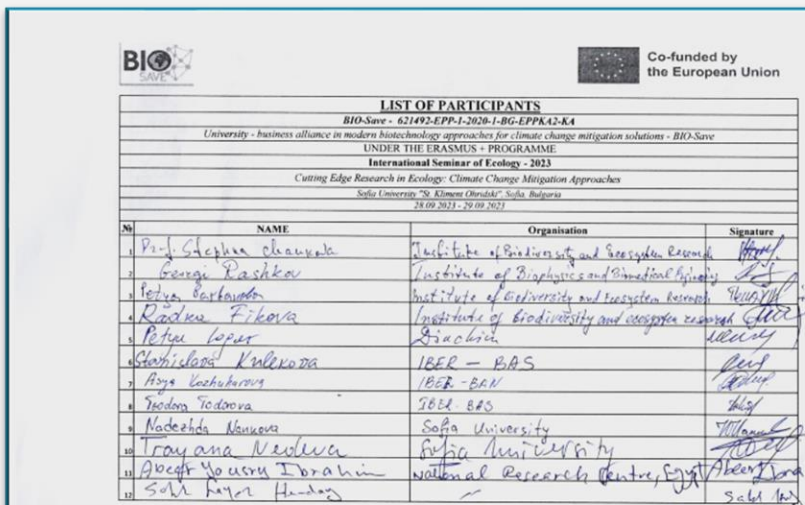 BIO
SAVE
Co-funded by
the European Union
LIST OF PARTICIPANTS
BIO-Save - 621492-EPP-1-2020-1-BG-EPPKA2-KA
University - business alliance in modern biotechnology approaches for climate change mitigation solutions - BIO-Save
UNDER THE ERASMUS + PROGRAMME
International Seminar of Ecology - 2023
Cutting Edge Research in Ecology: Climate Change Mitigation Approaches
Sofia University "St. Kliment Ohridski", Sofia, Bulgaria
28.09.2023 - 29.09.2023
№ NAME Organisation Signature
1 Prof. Institute of Biodiversity and Ecosystem Research
2 Georgi Rashkov Institute of Biophysics and Biomedical
3 Petya Institute of Biodiversity and Ecosystem Research
4 Radka Fikova Institute of biodiversity and ecosystem research
5 Petya
6 Stanislava IBER - BAS
7 Asya Kozhuharova IBER-BAN
8 Teodora Todorova IBER-BAS
9 Nadezhda Nankova Sofia University
10 Trayana Nedeva Sofia University
11 Abeer Yousry Ibrahim National Research Centre, Egypt Abeer
12